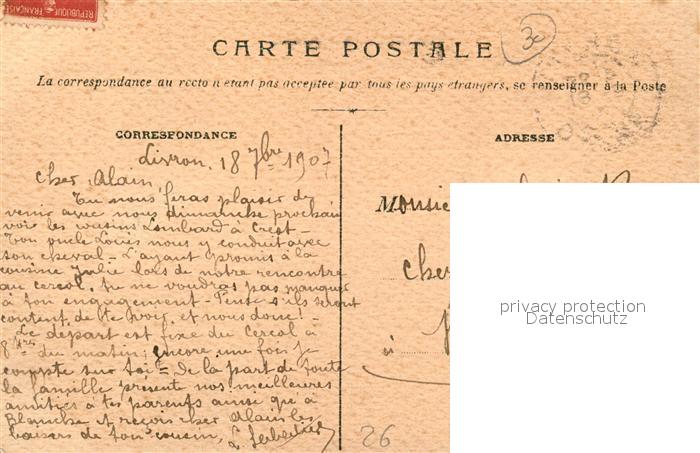 RÉPUBLIQUE FRANÇAISE
30
CARTE POSTALE
La correspondance au recto n'étant pas acceptée par tous les pays étrangers, se renseigner à la Poste
CORRESPONDANCE
ADRESSE
Livron, 18 7bre 1907
Cher Alain
Tu nous feras plaisir de
venir avec nous dimanche prochain
voir les cousins Lombard à Crest -
Ton oncle Louis nous y conduit avec
son cheval - L'ayant promis à la
cousine Julie lors de notre rencontre
au cercol, tu ne voudras pas manquer
à ton engagement - Pense s'ils seront
content de te voir, et nous donc! -
Le départ est fixé du Cercol à
8hres du matin; encore une fois je
compte sur toi = De la part de toute
la famille présente nos meilleures
amitiés à tes parents ainsi qu'à
Blanche et reçois cher Alain les
baisers de ton cousin,
L.
Monsie
cher
à
26
privacy protection
Datenschutz